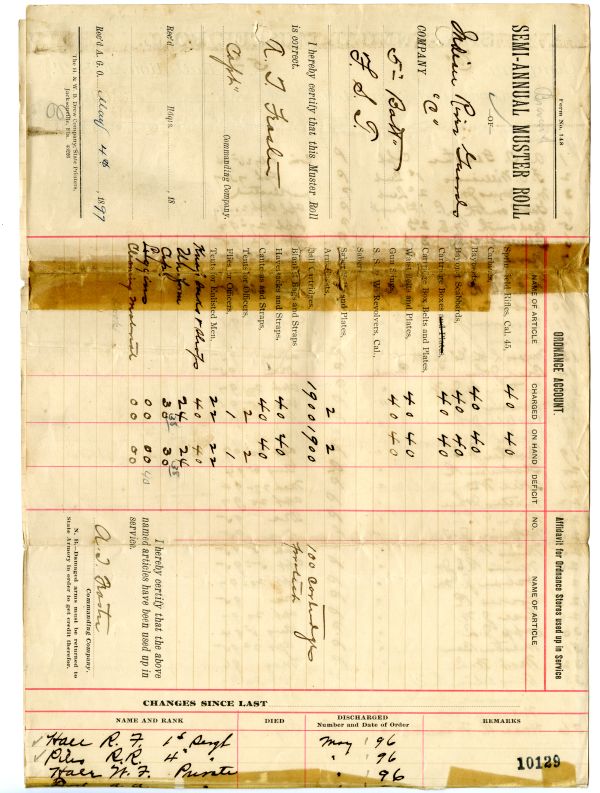 Form No. 148
SEMI-ANNUAL MUSTER ROLL
—OF—
Indian River Guards
COMPANY "C"
5" Batt
F. S. T.
I hereby certify that this Muster Roll
is correct.
Capt"
Commanding Company.
Rec'd Hdqrs. , 18
Rec'd A. G. O. May 4th , 1897
The H. & W. B. Drew Company, State Printers,
Jacksonville, Fla.
ORDNANCE ACCOUNT.
NAME OF ARTICLE CHARGED ON HAND DEFICIT
Springfield Rifles, Cal. 45, 40 40
Carbines,
Bayonets, 40 40
Bayonet Scabbards, 40 40
Cartridge Boxes and Plates, 40 40
Cartridge Box Belts and Plates,
Waist Belts and Plates, 40 40
Gun Slings, 40 40
S. & W. Revolvers, Cal.,
Sabres,
and Plates,
Arm Chests, 2 2
Ball Cartridges, 1900 1900
Blanket Bags and Straps
Haversacks and Straps, 40 40
Canteens and Straps, 40 40
Tents for Officers, 2 2
Flies for Officers, 1 1
Tents for Enlisted Men, 22 22
Knapsacks & Straps 40 40
Uniform 24 24
Caps 38 38
Leggins 00 00 40
Cleaning Material 00 00
Affidavit for Ordnance Stores used up in Service
NO. NAME OF ARTICLE
100 Cartridges
practice
I hereby certify that the above
named articles have been used up in
service.
Commanding Company.
N. B.—Damaged arms must be returned to
State Armory in order to get credit therefor.
CHANGES SINCE LAST
NAME AND RANK DIED DISCHARGED Number and Date of Order REMARKS
Hall R. F. 1st Sergt May 96
Piles R. R. 4" " " 96
Hall W. F. Private " 96
10129